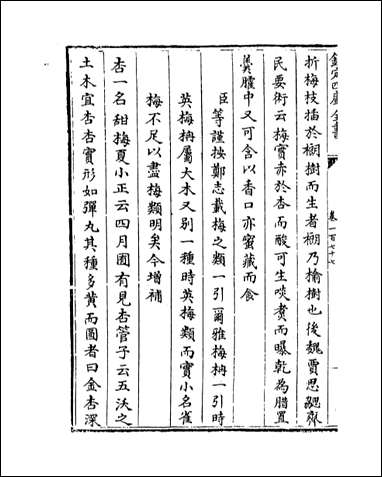 欽定四庫全書
卷一百七十七
折梅枝插於棡樹而生者棡乃榆樹也後魏賈思勰齊
民要術云梅實赤於杏而酸可生啖煮而曝乾為腊置
羮臛中又可含以香口亦蜜藏而食
臣等謹按鄭志載梅之類一引爾雅梅枏一引時
英梅枏屬大木又别一種時英梅類而實小名雀
梅不足以盡梅類明矣今增補
杏一名甜梅夏小正云四月囿有見杏管子云五沃之
土木宜杏杏實形如彈丸其種多黄而圓者曰金杏深